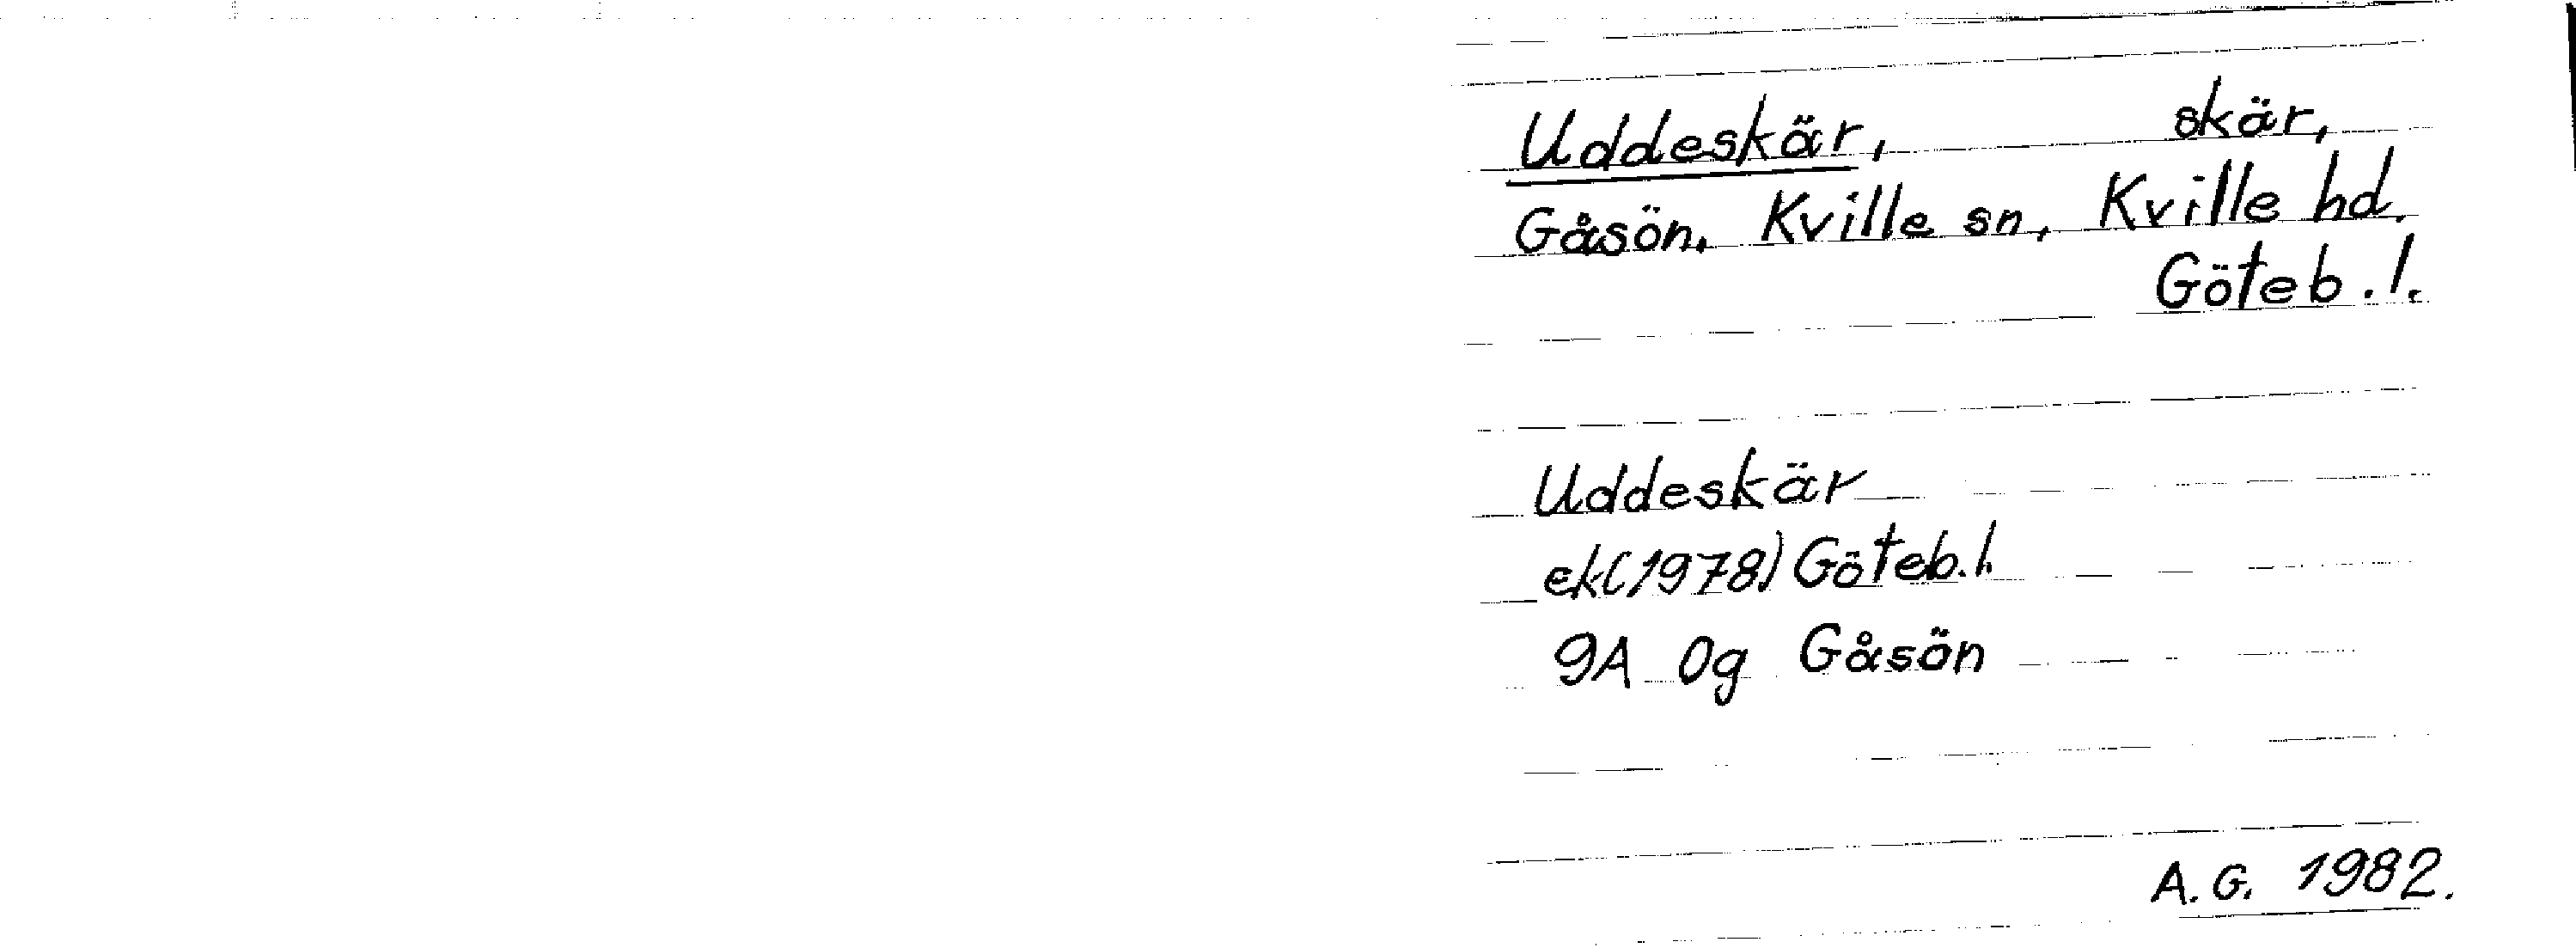 Uddeskär, skär,
Gåsön, Kville sn, Kville hd.
Göteb. l.
Uddeskär
ek(1978) Göteb. l.
9A 0g Gåsön
A. G. 1982.